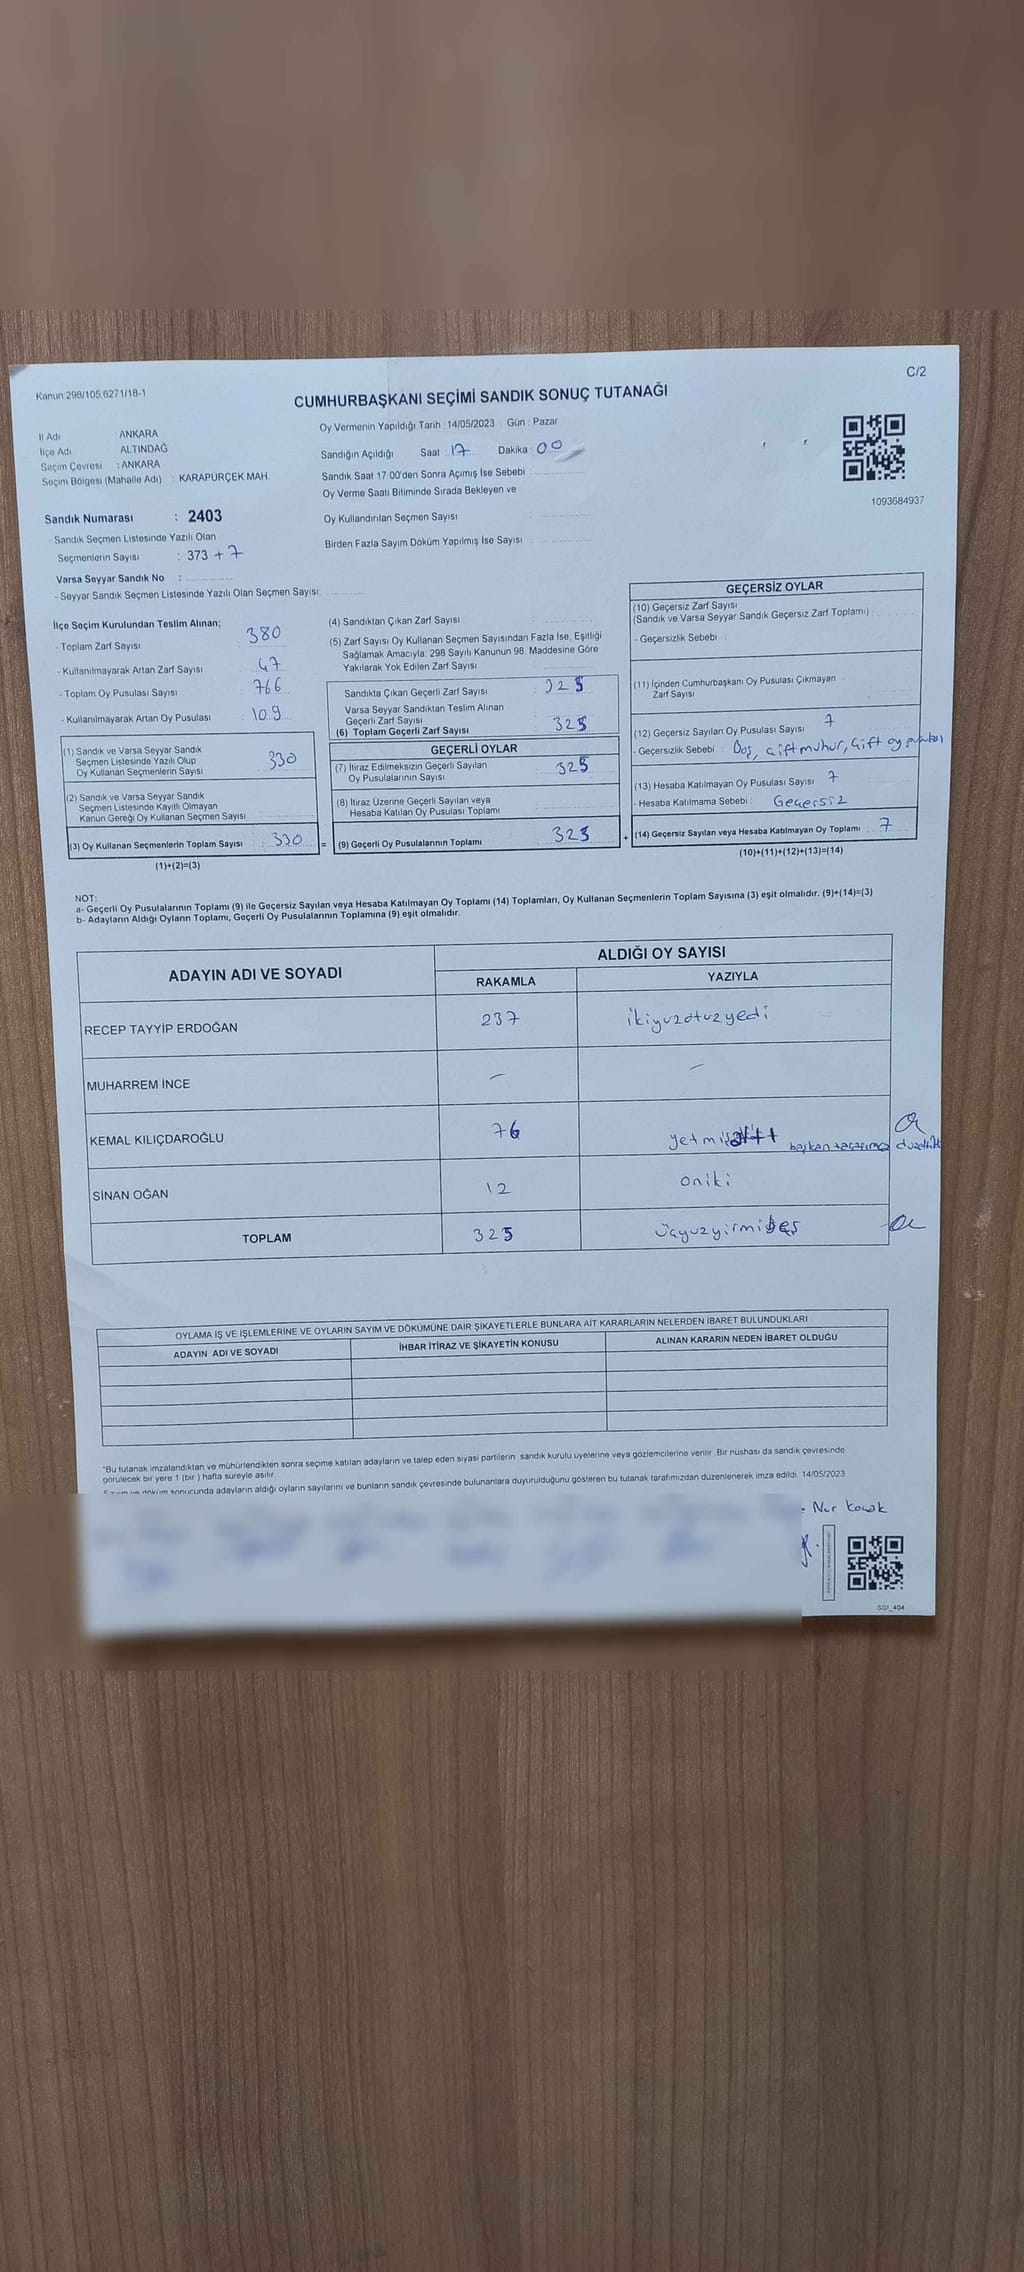 Kanun:298/105,6271/18-1
C/2
CUMHURBAŞKANI SEÇİMİ SANDIK SONUÇ TUTANAĞI
İl Adı ANKARA
İlçe Adı ALTINDAĞ
Seçim Çevresi : ANKARA
Seçim Bölgesi (Mahalle Adı) : KARAPÜRÇEK MAH.
Oy Vermenin Yapıldığı Tarih : 14/05/2023 Gün : Pazar
Sandığın Açıldığı Saat : 17 Dakika : 00
Sandık Saat 17:00'den Sonra Açımış İse Sebebi :
Oy Verme Saati Bitiminde Sırada Bekleyen ve
Oy Kullandırılan Seçmen Sayısı
Birden Fazla Sayım Döküm Yapılmış İse Sayısı :
1093684937
Sandık Numarası : 2403
- Sandık Seçmen Listesinde Yazılı Olan
Seçmenlerin Sayısı : 373 + 7
Varsa Seyyar Sandık No :
- Seyyar Sandık Seçmen Listesinde Yazılı Olan Seçmen Sayısı:
İlçe Seçim Kurulundan Teslim Alınan;
- Toplam Zarf Sayısı 380
- Kullanılmayarak Artan Zarf Sayısı 47
- Toplam Oy Pusulası Sayısı 766
- Kullanılmayarak Artan Oy Pusulası : 109
(1) Sandık ve Varsa Seyyar Sandık
Seçmen Listesinde Yazılı Olup
Oy Kullanan Seçmenlerin Sayısı 330
(2) Sandık ve Varsa Seyyar Sandık
Seçmen Listesinde Kayıtlı Olmayan
Kanun Gereği Oy Kullanan Seçmen Sayısı
(3) Oy Kullanan Seçmenlerin Toplam Sayısı : 330
(1)+(2)=(3)
(4) Sandıktan Çıkan Zarf Sayısı
(5) Zarf Sayısı Oy Kullanan Seçmen Sayısından Fazla İse, Eşitliği
Sağlamak Amacıyla, 298 Sayılı Kanunun 98. Maddesine Göre
Yakılarak Yok Edilen Zarf Sayısı
Sandıkta Çıkan Geçerli Zarf Sayısı 325
Varsa Seyyar Sandıktan Teslim Alınan
Geçerli Zarf Sayısı
(6) Toplam Geçerli Zarf Sayısı 325
GEÇERLİ OYLAR
(7) İtiraz Edilmeksizin Geçerli Sayılan
Oy Pusulalarının Sayısı 325
(8) İtiraz Üzerine Geçerli Sayılan veya
Hesaba Katılan Oy Pusulası Toplamı
= (9) Geçerli Oy Pusulalarının Toplamı 325 +
GEÇERSİZ OYLAR
(10) Geçersiz Zarf Sayısı
(Sandık ve Varsa Seyyar Sandık Geçersiz Zarf Toplamı) :
- Geçersizlik Sebebi :
(11) İçinden Cumhurbaşkanı Oy Pusulası Çıkmayan
Zarf Sayısı
(12) Geçersiz Sayılan Oy Pusulası Sayısı : 7
- Geçersizlik Sebebi : Boş, çift mühür, çift oy pusulası
(13) Hesaba Katılmayan Oy Pusulası Sayısı : 7
- Hesaba Katılmama Sebebi : Geçersiz
(14) Geçersiz Sayılan veya Hesaba Katılmayan Oy Toplamı : 7
(10)+(11)+(12)+(13)=(14)
NOT:
a- Geçerli Oy Pusulalarının Toplamı (9) ile Geçersiz Sayılan veya Hesaba Katılmayan Oy Toplamı (14) Toplamları, Oy Kullanan Seçmenlerin Toplam Sayısına (3) eşit olmalıdır. (9)+(14)=(3)
b- Adayların Aldığı Oyların Toplamı, Geçerli Oy Pusulalarının Toplamına (9) eşit olmalıdır.
ADAYIN ADI VE SOYADI
ALDIĞI OY SAYISI
RAKAMLA YAZIYLA
RECEP TAYYİP ERDOĞAN 237 ikiyüzotuzyedi
MUHARREM İNCE - -
KEMAL KILIÇDAROĞLU 76 yetmişaltı başkan tarafımca düzeltildi
SİNAN OĞAN 12 oniki
TOPLAM 325 üçyüzyirmibeş
OYLAMA İŞ VE İŞLEMLERİNE VE OYLARIN SAYIM VE DÖKÜMÜNE DAİR ŞİKAYETLERLE BUNLARA AİT KARARLARIN NELERDEN İBARET BULUNDUKLARI
ADAYIN ADI VE SOYADI İHBAR İTİRAZ VE ŞİKAYETİN KONUSU ALINAN KARARIN NEDEN İBARET OLDUĞU
*Bu tutanak imzalandıktan ve mühürlendikten sonra seçime katılan adayların ve talep eden siyasi partilerin sandık kurulu üyelerine veya gözlemcilerine verilir. Bir nüshası da sandık çevresinde
görülecek bir yere 1 (bir) hafta süreyle asılır.
Sayım ve döküm sonucunda adayların aldığı oyların sayılarını ve bunların sandık çevresinde bulunanlara duyurulduğunu gösteren bu tutanak tarafımızdan düzenlenerek imza edildi. 14/05/2023
Nur Konak
SSI_404